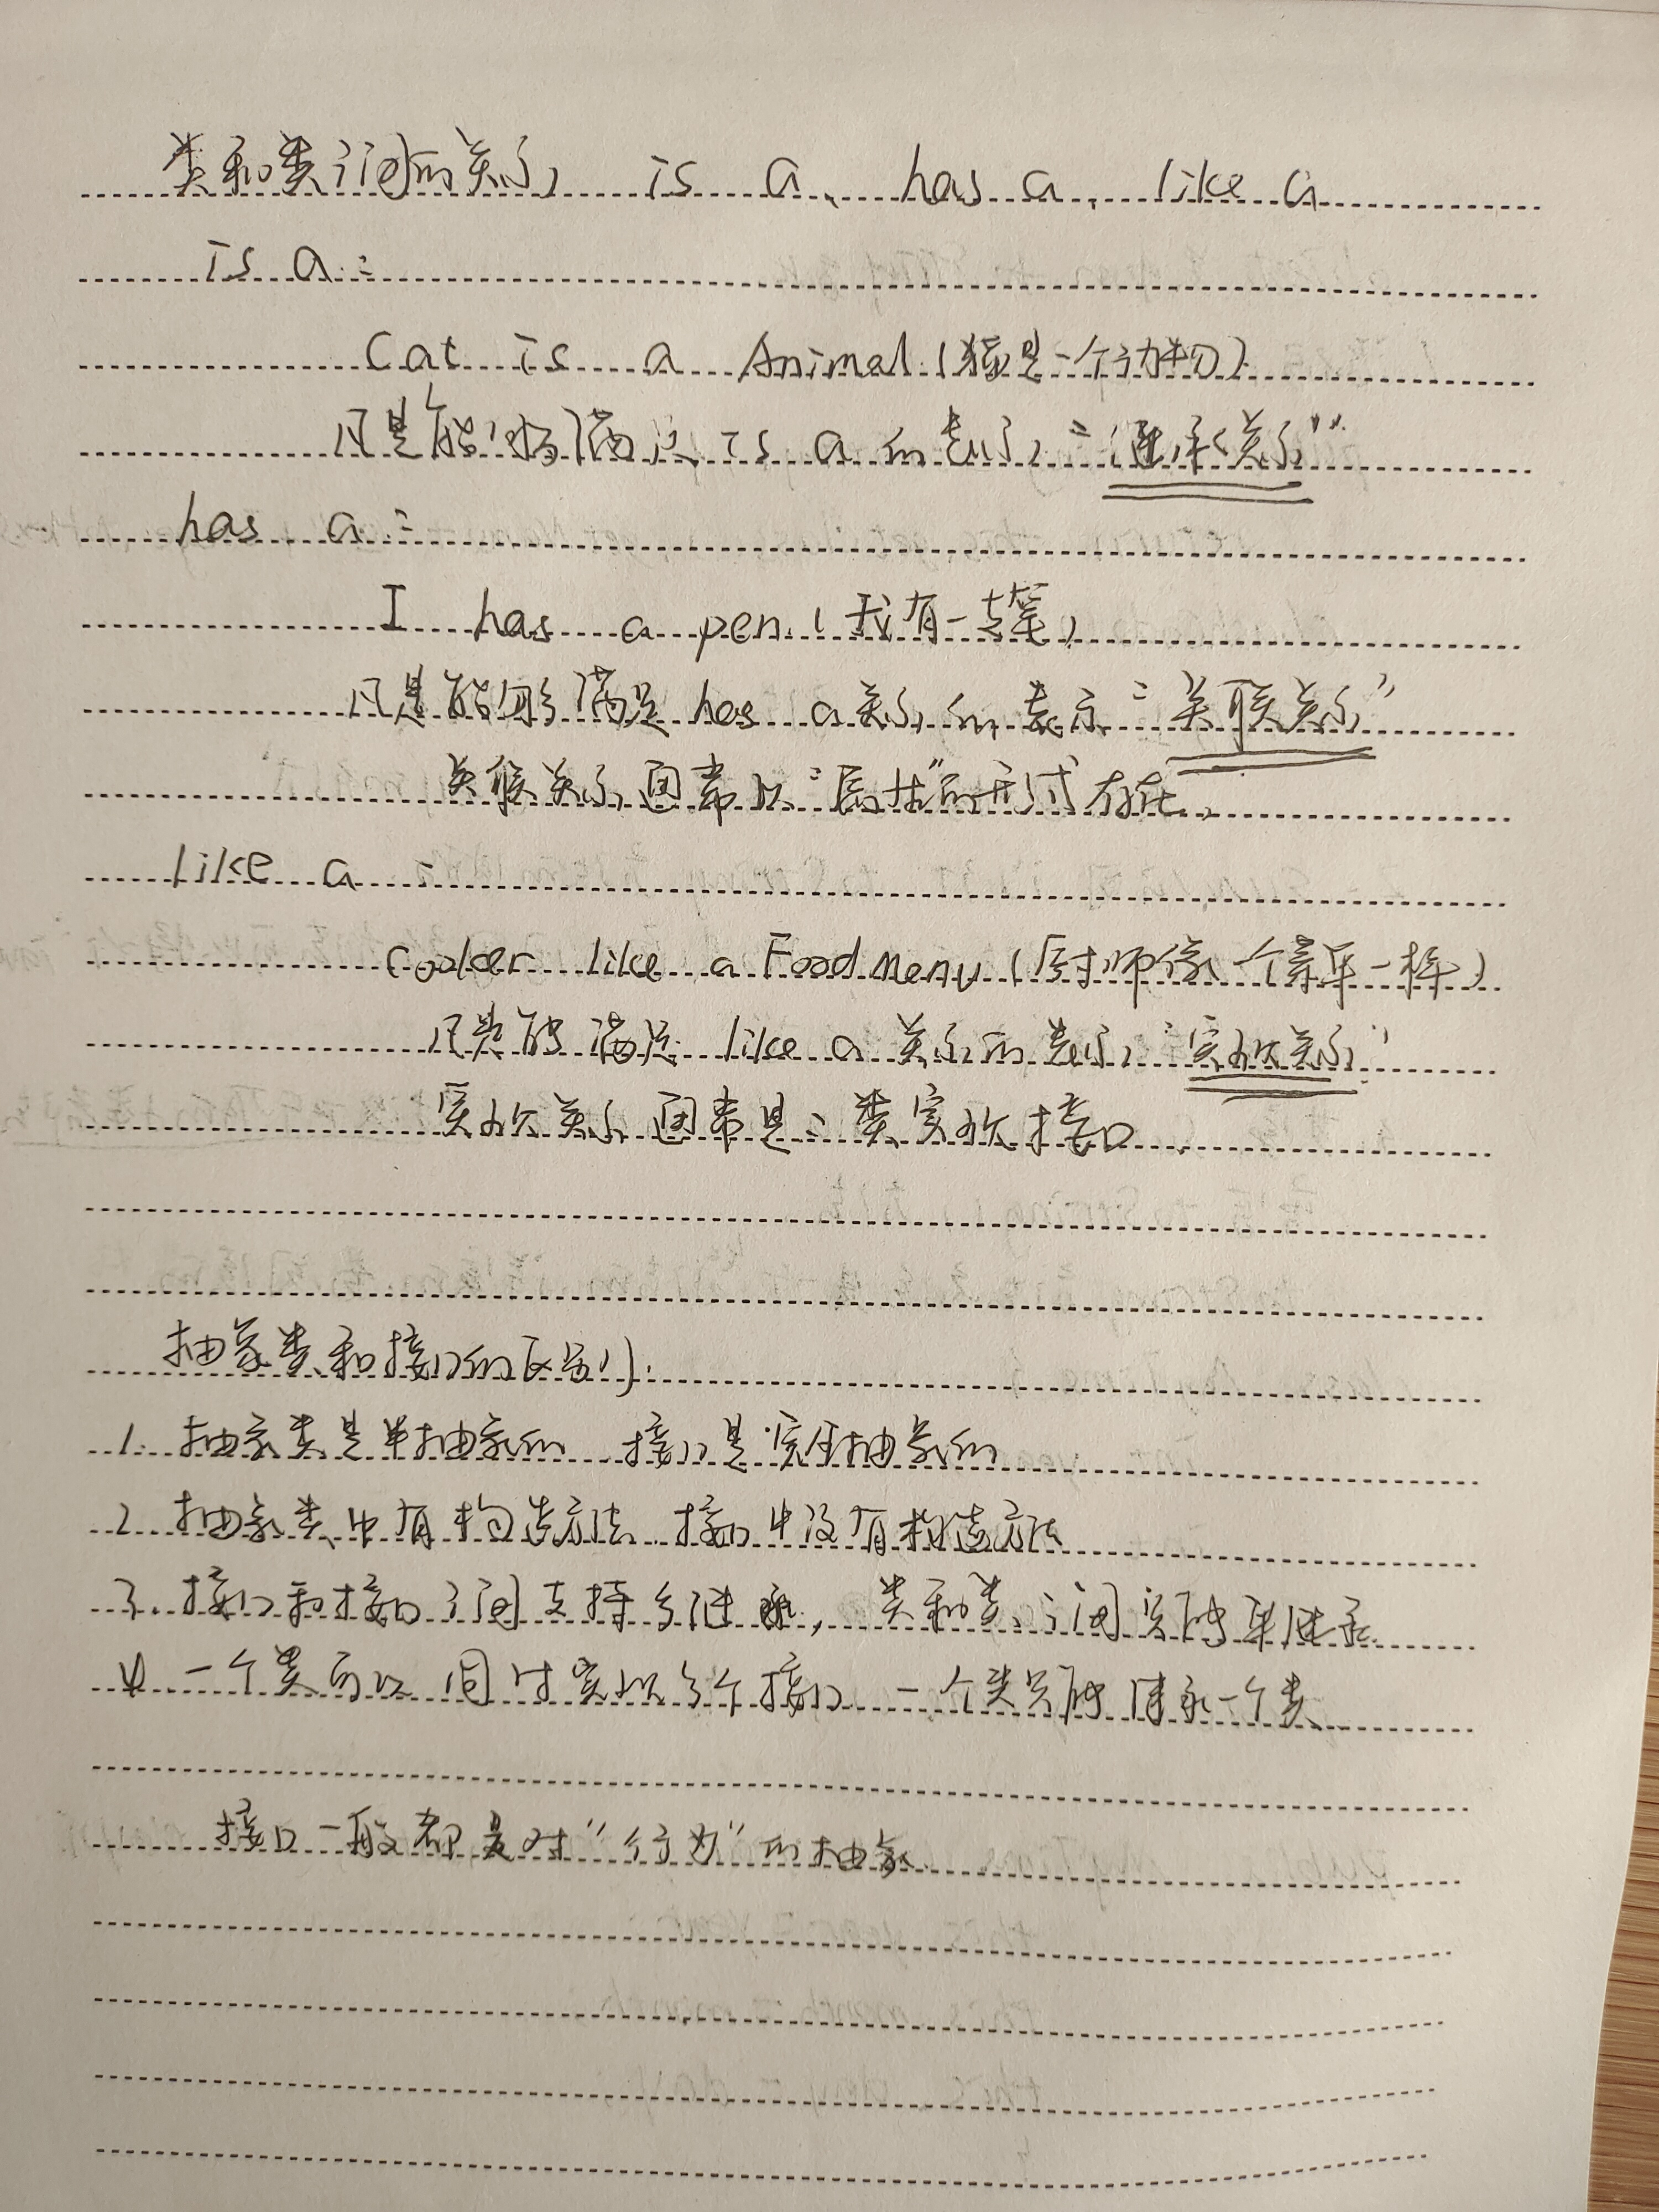 类和类之间的关系 is a、has a、like a
is a：
Cat is a Animal（猫是一个动物）
凡是能够满足 is a 的表示“继承关系”
has a：
I has a pen（我有一支笔）
凡是能够满足 has a 关系的表示“关联关系”
关联关系通常以“属性”的形式存在。
like a：
Cooker like a FoodMenu（厨师像一个菜单一样）
凡是能满足 like a 关系的表示“实现关系”
实现关系通常是：类实现接口
抽象类和接口的区别：
1. 抽象类是半抽象的 接口是完全抽象的
2. 抽象类中有构造方法 接口中没有构造方法
3. 接口和接口之间支持多继承，类和类之间只能单继承
4. 一个类可以同时实现多个接口 一个类只能继承一个类
接口一般都是对“行为”的抽象